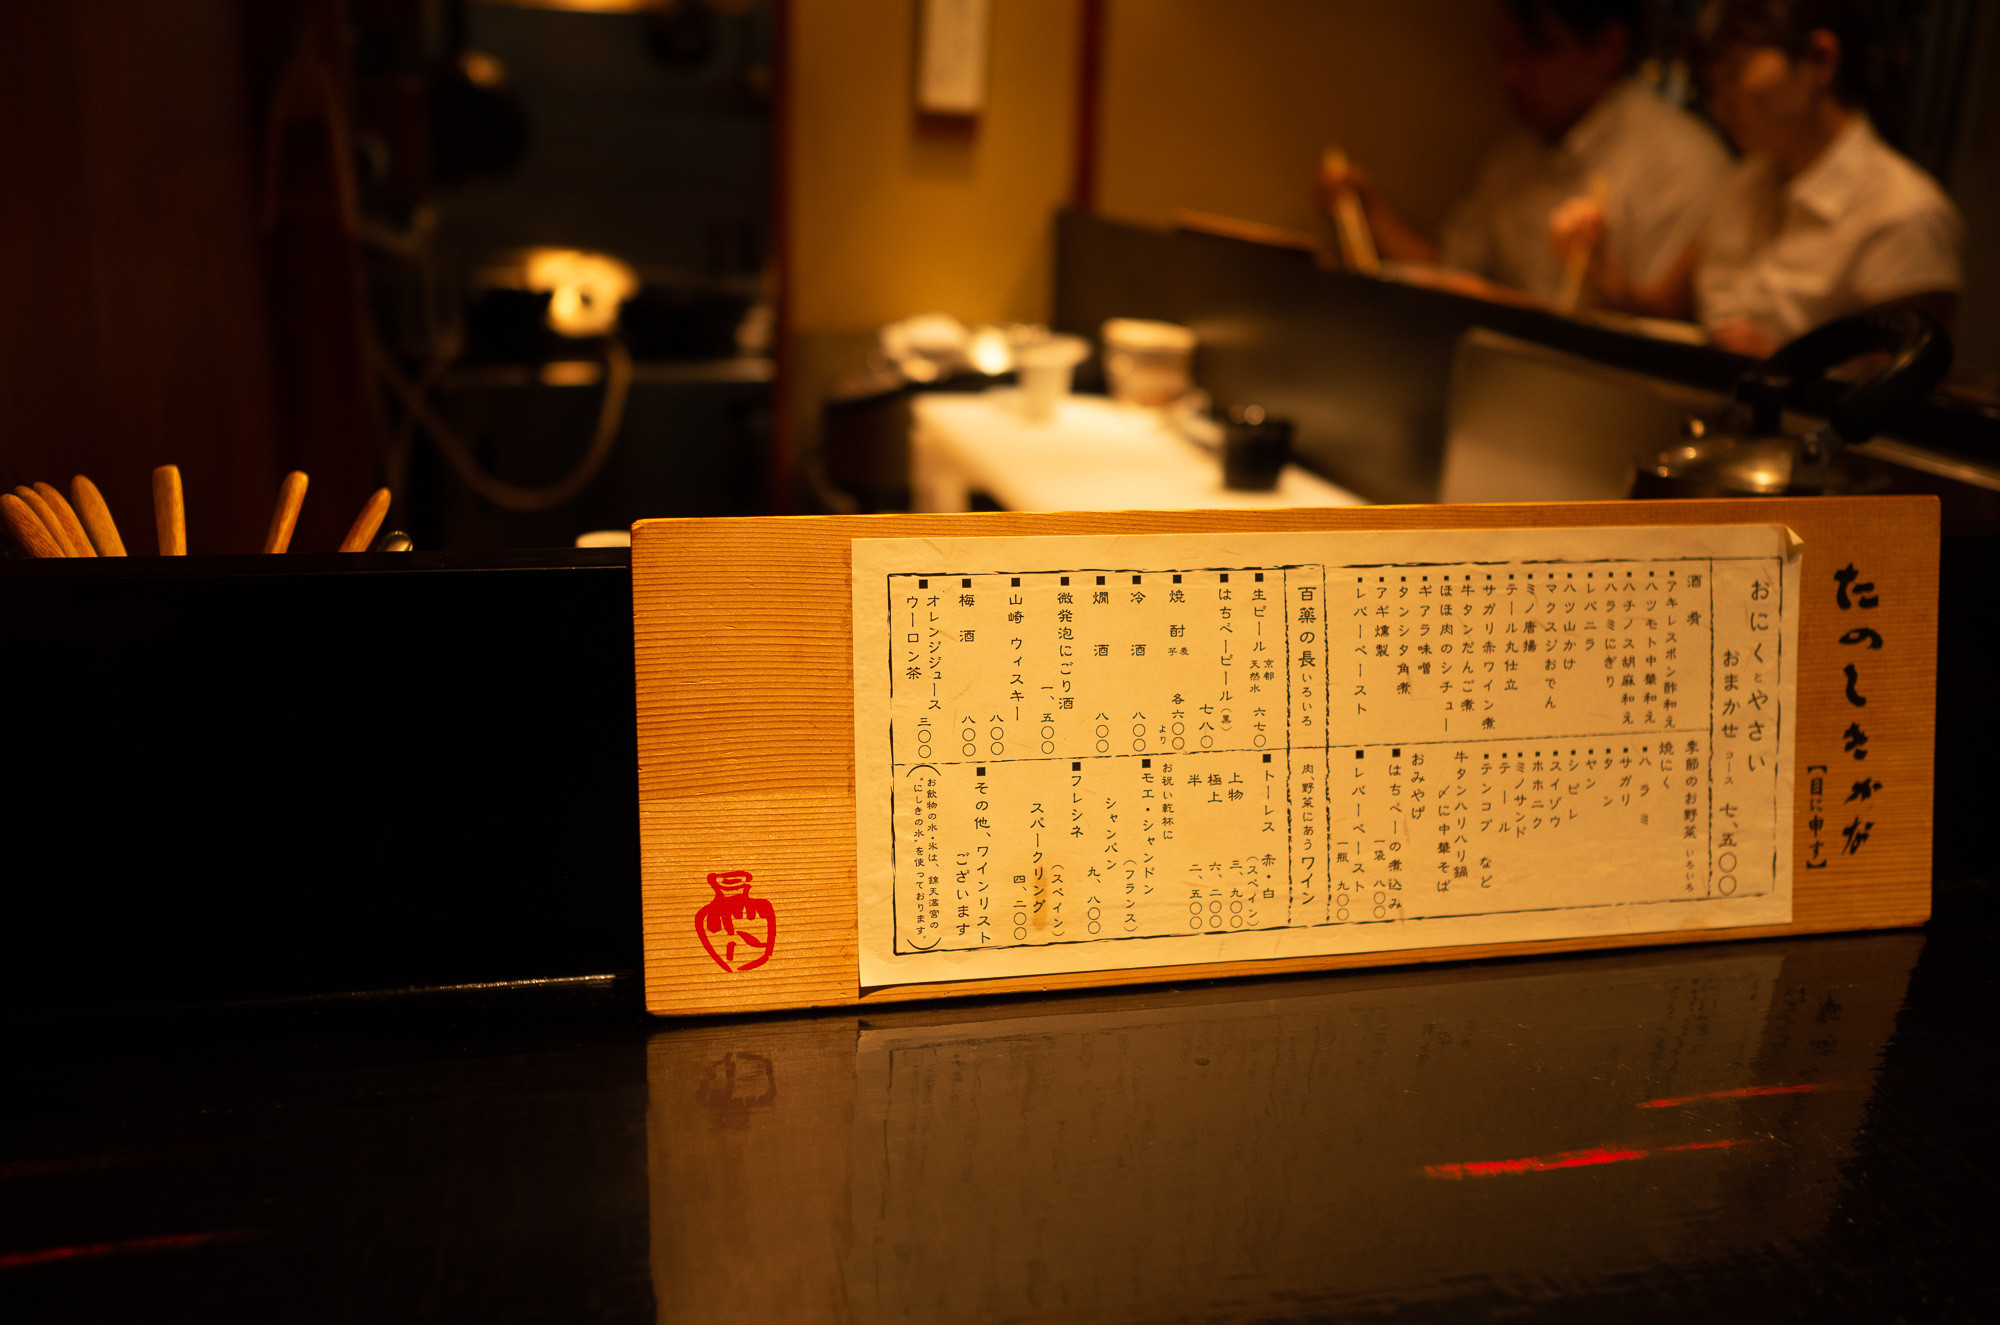 たのしきかな
【目に申す】
おにくとやさい
おまかせ コース 七、五〇〇
酒肴
▪アキレスポン酢和え
▪ハツモト中華和え
▪ハチノス胡麻和え
▪ハラミにぎり
▪レバニラ
▪ハツ山かけ
▪マクスジおでん
▪ミノ唐揚
▪テール丸仕立
▪サガリ赤ワイン煮
▪牛タンだんご煮
▪ほほ肉のシチュー
▪ギアラ味噌
▪タンシタ角煮
▪アギ燻製
▪レバーペースト
季節のお野菜 いろいろ
焼にく
▪ハラミ
▪サガリ
▪タン
▪ヤン
▪シビレ
▪スイゾウ
▪ホホニク
▪ミノサンド
▪テール
▪テンコブ など
牛タンハリハリ鍋
〆に中華そば
おみやげ
■はちべーの煮込み
一袋 八〇〇
■レバーペースト
一瓶 九〇〇
百薬の長 いろいろ
肉、野菜にあう ワイン
■生ビール 京都 天然水 六七〇
■はちべービール(黒)
七八〇
■焼酎 麦 芋 各六〇〇 より
■冷酒 八〇〇
■燗酒 八〇〇
■微発泡にごり酒
一、五〇〇
■山崎 ウィスキー
八〇〇
■梅酒 八〇〇
■オレンジジュース
ウーロン茶 三〇〇
■トーレス 赤・白
(スペイン)
上物 三、九〇〇
極上 六、二〇〇
半 二、五〇〇
お祝い乾杯に
■モエ・シャンドン
(フランス)
シャンパン 九、八〇〇
■フレシネ
(スペイン)
スパークリング 四、二〇〇
■その他、ワインリスト
ございます
(お飲物の水・氷は、錦天満宮の
"にしきの水"を使っております。)